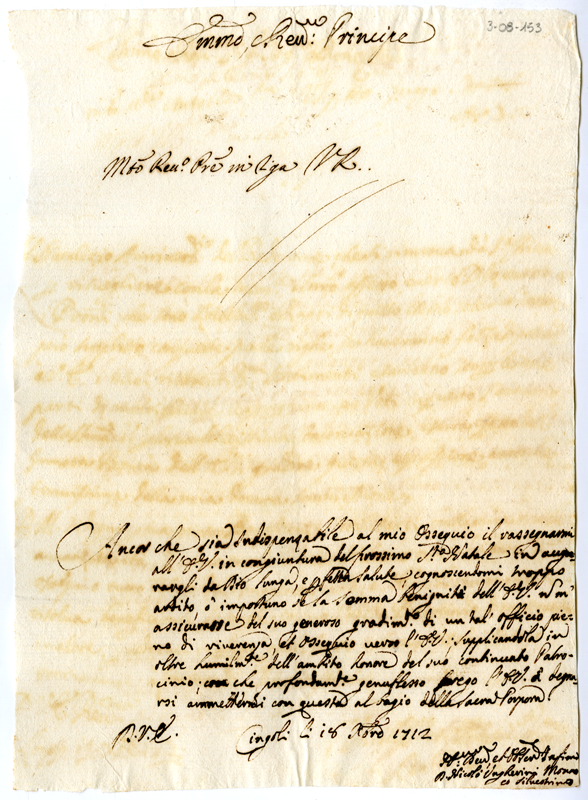 3-08-153
Em̃mo, e Reu.mo Principe
Mto Reu.o Pre in Xga V.R..
Ancor che sia Indispensabile al mio Ossequio il rassegnarmi
all'E.V. in congiuntura del prossimo Sto Natale in augu-
rargli da Dio lunga, e perfetta salute; cognoscendomi troppo
ardito, ò importuno se la somma benignità dell'E.V. non m'
assicurasse del suo generoso gradimto di un tal' officio pie-
no di riverenza, et ossequio verso l'E.V. supplicandola in
oltre humilmte dell'ambito honore del suo continuato Patro-
cinio; con che profondamte genuflesso prego l'E.V. à degna-
rsi ammettermi con questa al bagio della Sacra Porpora.
Cingoli li 18 Xbre 1712
D. Nicolò Vagherini Monaco
co Silvestrino